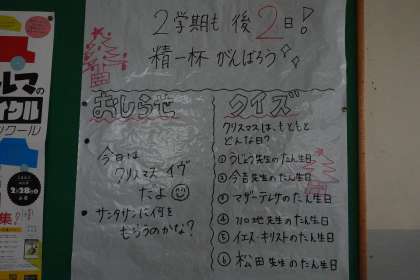 2学期も後2日!
精一杯がんばろう
おしらせ
今日は
クリスマス イヴ
だよ
サンタサンに何を
もらうのかな?
クイズ
クリスマスは、もともと
どんな日?
① うじょう先生のたん生日
② 今吉先生のたん生日
③ マザーテレサのたん生日
④ 加地先生のたん生日
⑤ イエス・キリストのたん生日
⑥ 松田先生のたん生日
ルマの
イクル
クール
2月28日
集